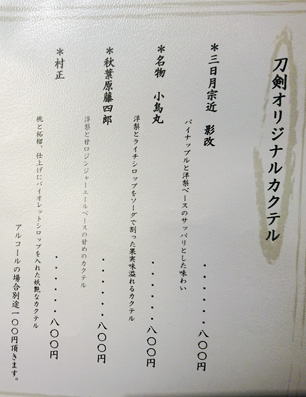 刀剣オリジナルカクテル
＊三日月宗近 影改
パイナップルと洋梨ベースのサッパリとした味わい
・・・・・・・八〇〇円
＊名物 小烏丸
洋梨とライチシロップをソーダで割った果実味溢れるカクテル
・・・・・・・八〇〇円
＊秋葉原藤四郎
洋梨と甘口ジンジャーエールベースの甘めのカクテル
・・・・・・・八〇〇円
＊村正
桃と柘榴、仕上げにバイオレットシロップを入れた妖艶なカクテル
・・・・・・・八〇〇円
アルコールの場合別途一〇〇円頂きます。